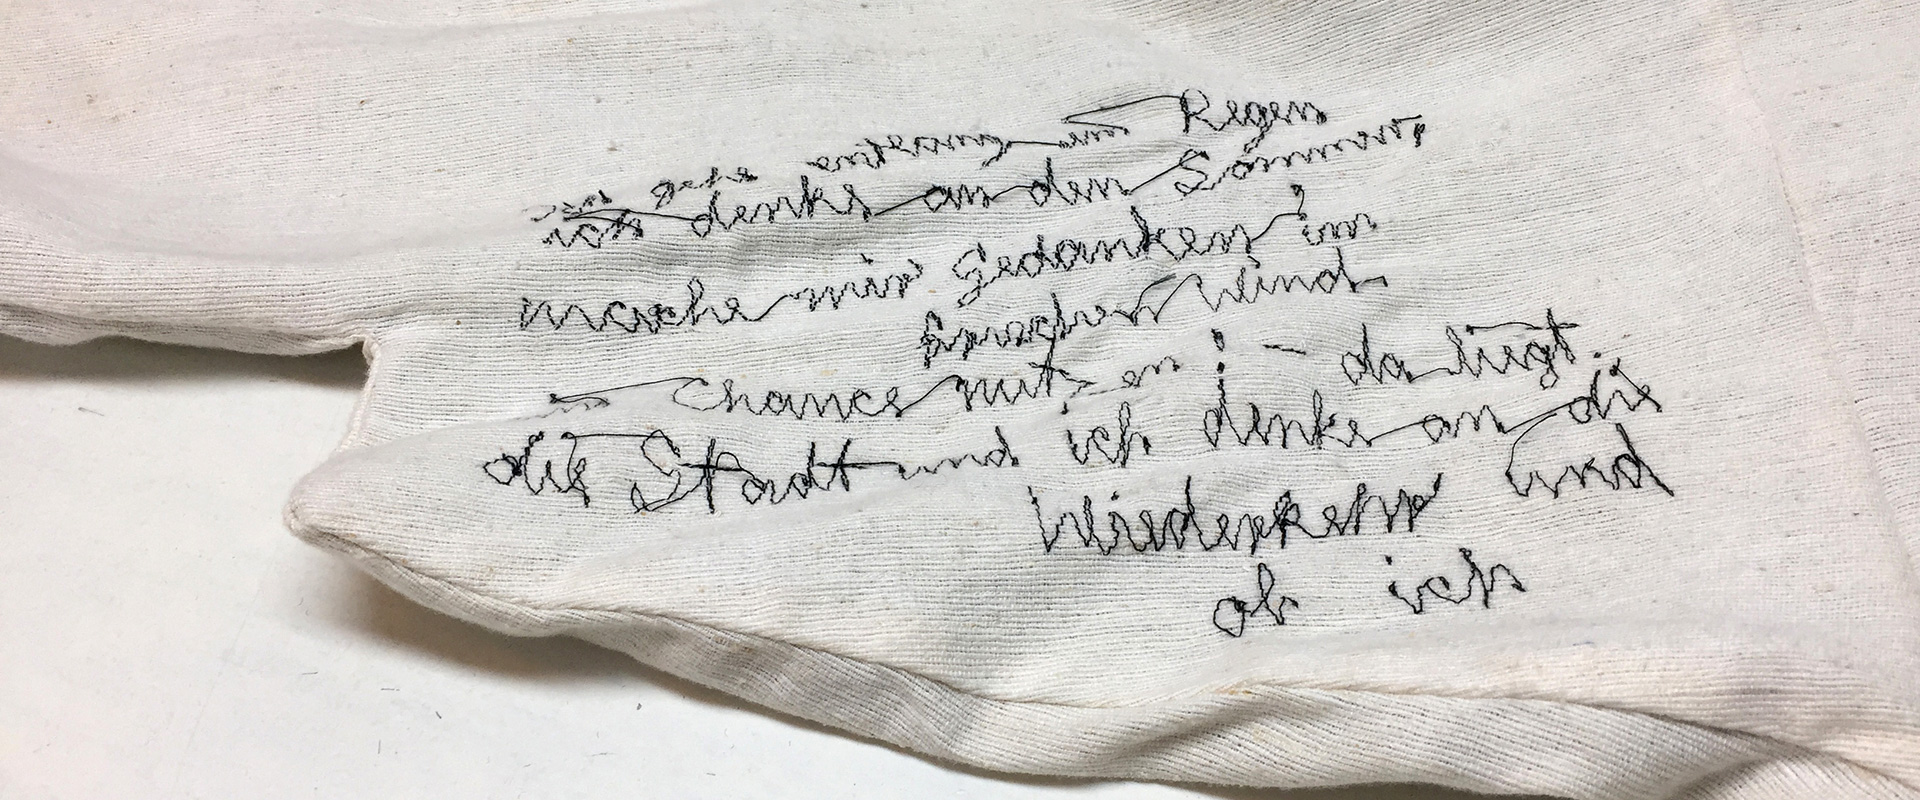 ich gehe entlang im Regen
ich denke an den Sommer,
mache mir Gedanken im
frischen Wind
Chance nutzen! - da liegt
die Stadt und ich denke an die
Wiederkehr und
ob ich